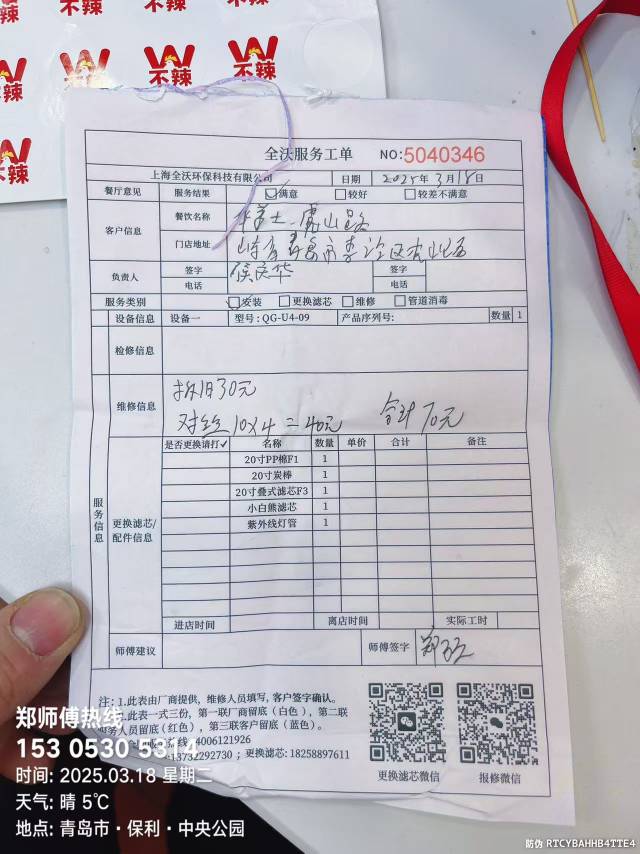 不辣
不辣
不辣
不辣
不辣
全沃服务工单 NO:5040346
上海全沃环保科技有限公司 日期 2025年3月18日
餐厅意见 服务结果 满意 较好 较差不满意
客户信息 餐饮名称 华莱士 虎山路
门店地址
负责人 签字 签字
电话 电话
服务类别 安装 更换滤芯 维修 管道消毒
服务信息
设备信息 设备一 型号:QG-U4-09 产品序列号: 数量 1
检修信息
维修信息 拆旧30元
对丝 10×4=40元 合计 70元
更换滤芯/配件信息
是否更换请打✓ 名称 数量 单价 合计 备注
20寸PP棉F1 1
20寸炭棒 1
20寸叠式滤芯F3 1
小白熊滤芯 1
紫外线灯管 1
进店时间 离店时间 实际工时
师傅建议 师傅签字
注:1.此表由厂商提供，维修人员填写，客户签字确认。
2.此表一式三份，第一联厂商留底(白色)，第二联
服务人员留底(红色)，第三联客户留底(蓝色)。
4006121926
13732292730 ; 更换滤芯: 18258897611
更换滤芯微信 报修微信
郑师傅热线
153 0530 5314
时间: 2025.03.18 星期二
天气: 晴 5℃
地点: 青岛市·保利·中央公园
防伪 RTCYBAHHB4TTE4